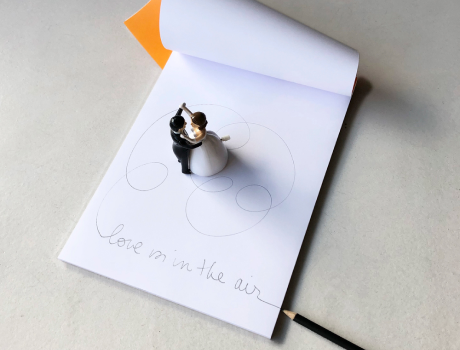 love is in the air